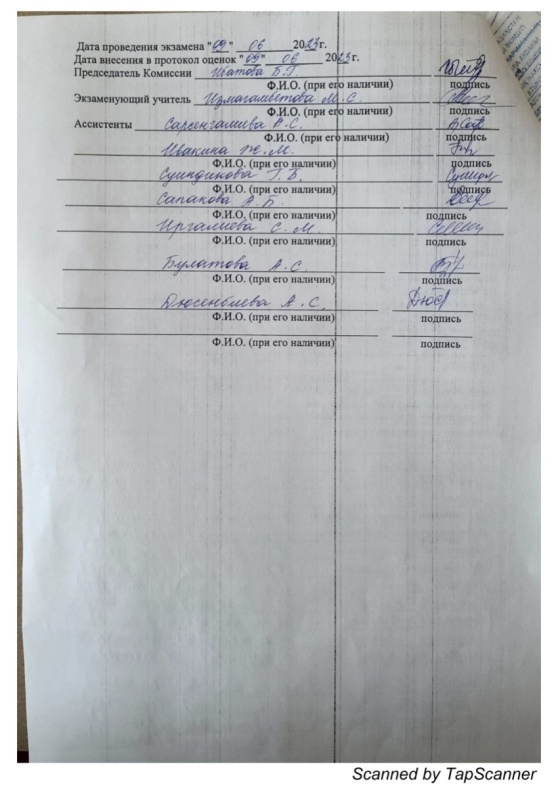 Дата проведения экзамена "09" 06 2023г.
Дата внесения в протокол оценок "09" 06 2023г.
Председатель Комиссии Иватова Б.Г.
Ф.И.О. (при его наличии) подпись
Экзаменующий учитель Измагамбетова М.С.
Ф.И.О. (при его наличии) подпись
Ассистенты Сарсенгалиева А.С.
Ф.И.О. (при его наличии) подпись
Ивакина Ж.М.
Ф.И.О. (при его наличии) подпись
Суиндикова Г.Б.
Ф.И.О. (при его наличии) подпись
Сапакова А.Б.
Ф.И.О. (при его наличии) подпись
Иргалиева С.М
Ф.И.О. (при его наличии) подпись
Булатова А.С.
Ф.И.О. (при его наличии) подпись
Дюсенбиева А.С.
Ф.И.О. (при его наличии) подпись
Ф.И.О. (при его наличии) подпись
Scanned by TapScanner